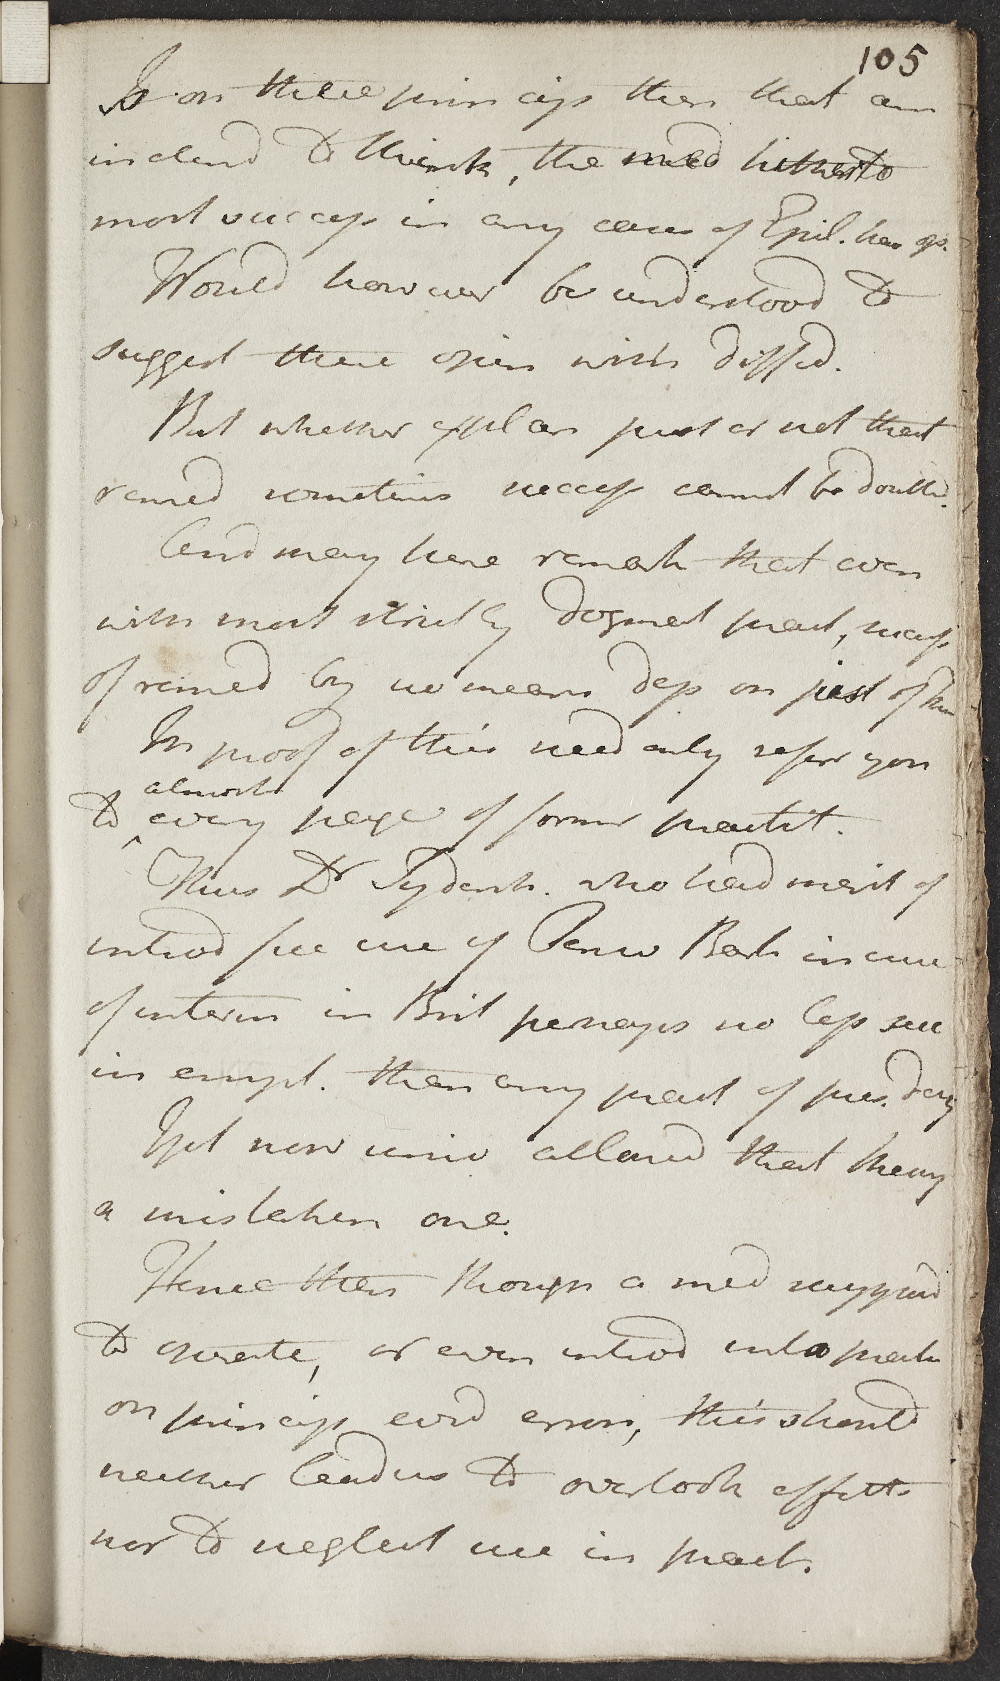 105
Is on these princips then that am
inclend to think, the med hitherto
most success in any cases of Epil. has op.
Would however be understood to
suggest these opin with diffid.
But whether explan just or not that
remed sometims success cannot be doubted.
And may here remark that even
with most strictly dogmat pract, success
of remed by no means dep on just of
In proof of this need only refer you
almost
to every page of former practit.
Thus Dr Sydenh. who had merit of
introd free use of Peruv Bark in cure
of interm in Brit perhaps no less succ
in empl. than any pract of pres. day
Yet now univ allowed that theory
a mistaken one.
Hence then though a med supposed
to operate, or even introd into pract
on princips evid erron, this should
neither lead us to overlook effects
nor to neglect use in pract.